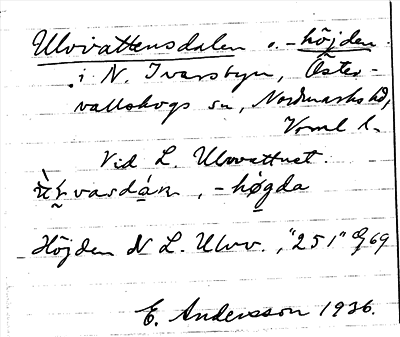 Ulvvattensdalen o. -höjden.
i N. Ivarsbyn, Öster-
vallskogs sn, Nordmarks hd,
Värml l.
Vid L. Ulvvattnet.
vasdán, -høgda
Höjden N L. Ulvv., "251" Q69
E. Andersson 1936.